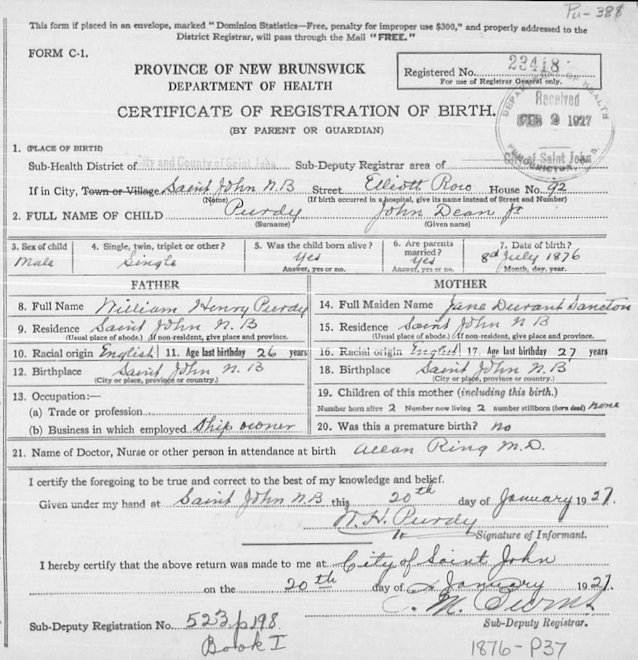 Pu-388
This form if placed in an envelope, marked "Dominion Statistics—Free, penalty for improper use $300," and properly addressed to the
District Registrar, will pass through the Mail "FREE."
FORM C-1.
PROVINCE OF NEW BRUNSWICK
DEPARTMENT OF HEALTH
Registered No. 23418
For use of Registrar General only.
CERTIFICATE OF REGISTRATION OF BIRTH.
(BY PARENT OR GUARDIAN)
DEPARTMENT OF HEALTH
Received
FEB 2 1927
FREDERICTON, N.B.
1. (PLACE OF BIRTH)
Sub-Health District of City and County of Saint John Sub-Deputy Registrar area of City of Saint John
If in City, Town or Village Saint John N.B Street Elliott Row House No. 92
(Name) (If birth occurred in a hospital, give its name instead of Street and Number)
2. FULL NAME OF CHILD Purdy John Dean Jr
(Surname) (Given name)
3. Sex of child 4. Single, twin, triplet or other? 5. Was the child born alive? 6. Are parents married? 7. Date of birth?
Male Single Yes Yes 8th July 1876
Answer, yes or no. Answer, yes or no. Month, day, year.
FATHER MOTHER
8. Full Name William Henry Purdy 14. Full Maiden Name Jane Durant Sancton
9. Residence Saint John N.B 15. Residence Saint John N.B
(Usual place of abode.) If non-resident, give place and province. (Usual place of abode.) If non-resident, give place and province.
10. Racial origin English 11. Age last birthday 26 years 16. Racial origin English 17. Age last birthday 27 years
12. Birthplace Saint John N.B 18. Birthplace Saint John N.B
(City or place, province or country.) (City or place, province or country.)
13. Occupation:— 19. Children of this mother (including this birth.)
(a) Trade or profession Number born alive 2 Number now living 2 number stillborn (born dead) none
(b) Business in which employed Ship owner 20. Was this a premature birth? No
21. Name of Doctor, Nurse or other person in attendance at birth Allan Ring M.D.
I certify the foregoing to be true and correct to the best of my knowledge and belief.
Given under my hand at Saint John N.B this 20th day of January 1927.
W. H. Purdy
Signature of Informant.
I hereby certify that the above return was made to me at City of Saint John
on the 20th day of January 1927.
M.
Sub-Deputy Registrar.
Sub-Deputy Registration No. 523 p 198
Book I
1876-P37